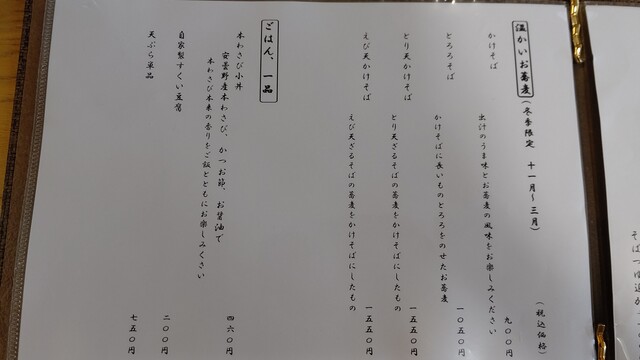 温かいお蕎麦（冬季限定　十一月～三月）
（税込価格）
かけそば
出汁のうま味とお蕎麦の風味をお楽しみください
九〇〇円
とろろそば
かけそばに長いものとろろをのせたお蕎麦
一〇五〇円
とり天かけそば
とり天ざるそばの蕎麦をかけそばにしたもの
一五五〇円
えび天かけそば
えび天ざるそばの蕎麦をかけそばにしたもの
一五五〇円
ごはん、一品
本わさび小丼
安曇野産本わさび、かつお節、お醤油で
本わさび本来の香りをご飯とともにお楽しみください
四六〇円
自家製すくい豆腐
二〇〇円
天ぷら単品
七五〇円